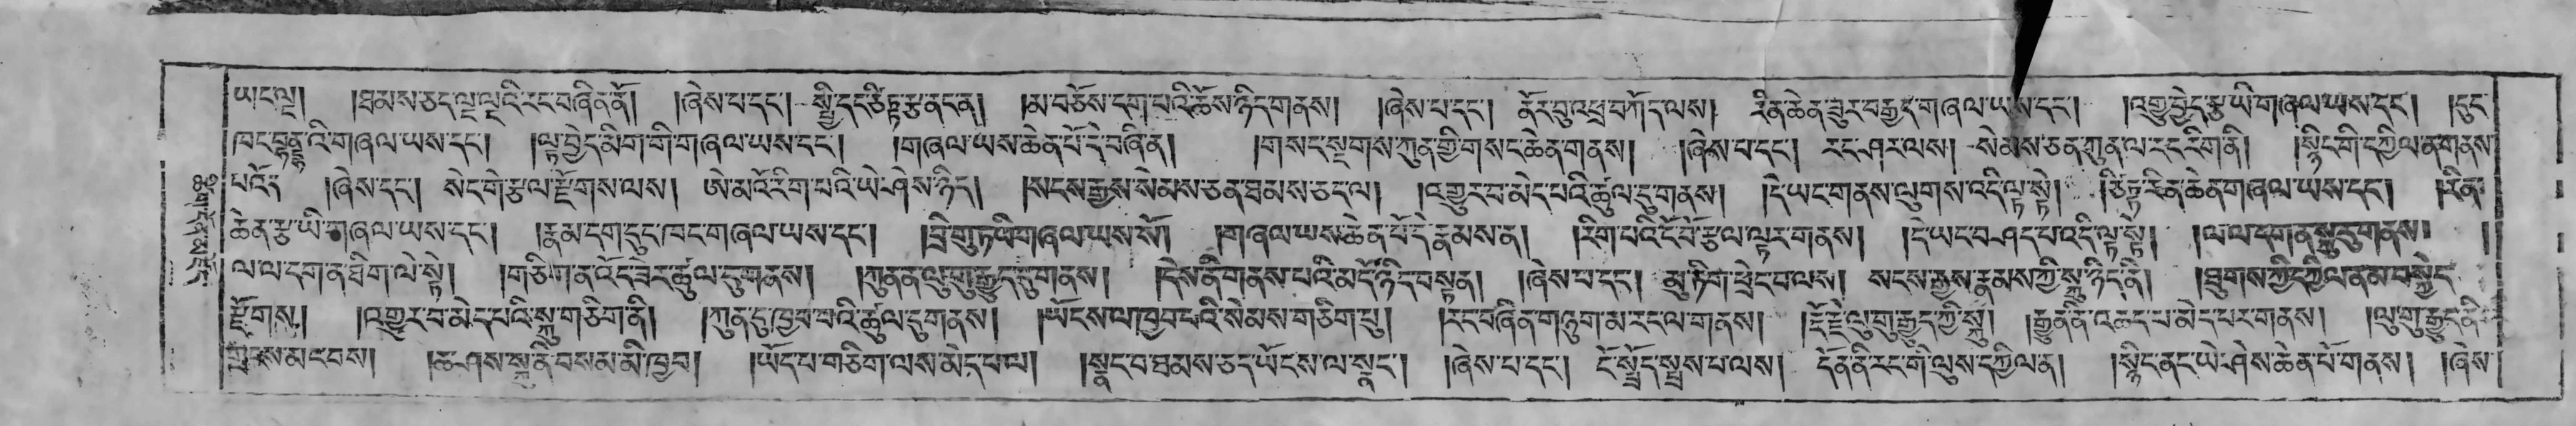 ཡང་ལྔ། །ཐམས་ཅད་ལྔ་ལྔའི་རང་བཞིན་ནོ། །ཞེས་པ་དང་། སྤྱི་དང་ཙིཏྟ་རྩ་ནང་ན། །མ་བཅོས་དག་པའི་ཆོས་ཉིད་གནས། །ཞེས་པ་དང་། ནོར་བུ་འཕྲ་བཀོད་ལས། རིན་ཆེན་ཟུར་བརྒྱད་གཞལ་ཡས་དང་། །འགྱུ་བྱེད་རྩ་ཡི་གཞལ་ཡས་དང་། །དུང་
ཁང་བྷནྡྷའི་གཞལ་ཡས་དང་། །ལྟ་བྱེད་མིག་གི་གཞལ་ཡས་དང་། །གཞལ་ཡས་ཆེན་པོ་དེ་བཞིན། །གསང་སྔགས་ཀུན་གྱི་གསང་ཆེན་གནས། །ཞེས་པ་དང་། རང་ཤར་ལས། སེམས་ཅན་ཀུན་ལ་རང་རིག་ནི། །སྙིང་གི་དཀྱིལ་ན་གནས་
པའོ། །ཞེས་དང་། སེང་གེ་རྩལ་རྫོགས་ལས། ཨེ་མའོ་རིག་པའི་ཡེ་ཤེས་ཉིད། །སངས་རྒྱས་སེམས་ཅན་ཐམས་ཅད་ལ། །འགྱུར་བ་མེད་པའི་ཚུལ་དུ་གནས། །དེ་ཡང་གནས་ལུགས་འདི་ལྟ་སྟེ། ཙིཏྟ་རིན་ཆེན་གཞལ་ཡས་དང་། །རིན་
ཆེན་རྩ་ཡི་གཞལ་ཡས་དང་། །རྣམ་དག་དུང་ཁང་གཞལ་ཡས་དང་། །བྲི་གུ་ཏ་ཡི་གཞལ་ཡས་སོ། །གཞལ་ཡས་ཆེན་པོ་དེ་རྣམས་ན། །རིག་པའི་ངོ་བོ་རྩལ་ལྟར་གནས། །དེ་ཡང་བཤད་པ་འདི་ལྟ་སྟེ། །ལ་ལ་དག་ན་སྐུ་རུ་གནས། །
ལ་ལ་དག་ན་ཐིག་ལེ་སྟེ། །གཅིག་ན་འོད་ཟེར་ཚུལ་དུ་གནས། །ཀུན་ན་ལུ་གུ་རྒྱུད་དུ་གནས། །དེས་ནི་གནས་པའི་མདོ་ཉིད་བསྟན། །ཞེས་པ་དང་། མུ་ཏིག་ཕྲེང་བ་ལས། སངས་རྒྱས་རྣམས་ཀྱི་སྐུ་ཉིད་ནི། །ཐུགས་ཀྱི་དཀྱིལ་ན་མ་བསྐྱེད་
རྫོགས། །འགྱུར་བ་མེད་པའི་སྐུ་གཅིག་ནི། །ཀུན་ཏུ་ཁྱབ་པའི་ཚུལ་དུ་གནས། །ཡོངས་ལ་ཁྱབ་པའི་སེམས་གཅིག་པུ། །རང་བཞིན་གཉུག་མ་རང་ལ་གནས། །རྡོ་རྗེ་ལུ་གུ་རྒྱུད་ཀྱི་སྐུ། །རྒྱུན་ནི་འཆད་པ་མེད་པར་གནས། །ལུ་གུ་རྒྱུད་ནི་
གྲངས་མང་བས། །ཆ་ཤས་སྐུ་ནི་བསམ་མི་ཁྱབ། །ཡོད་པ་གཅིག་ལས་མེད་པ་ལ། །སྣང་བ་ཐམས་ཅད་ཡོངས་ལ་སྣང་། །ཞེས་པ་དང་། ངོ་སྤྲོད་སྤྲས་པ་ལས། དོན་ནི་རང་གི་ལུས་དཀྱིལ་ན། །སྙིང་ནང་ཡེ་ཤེས་ཆེན་པོ་གནས། །ཞེས་